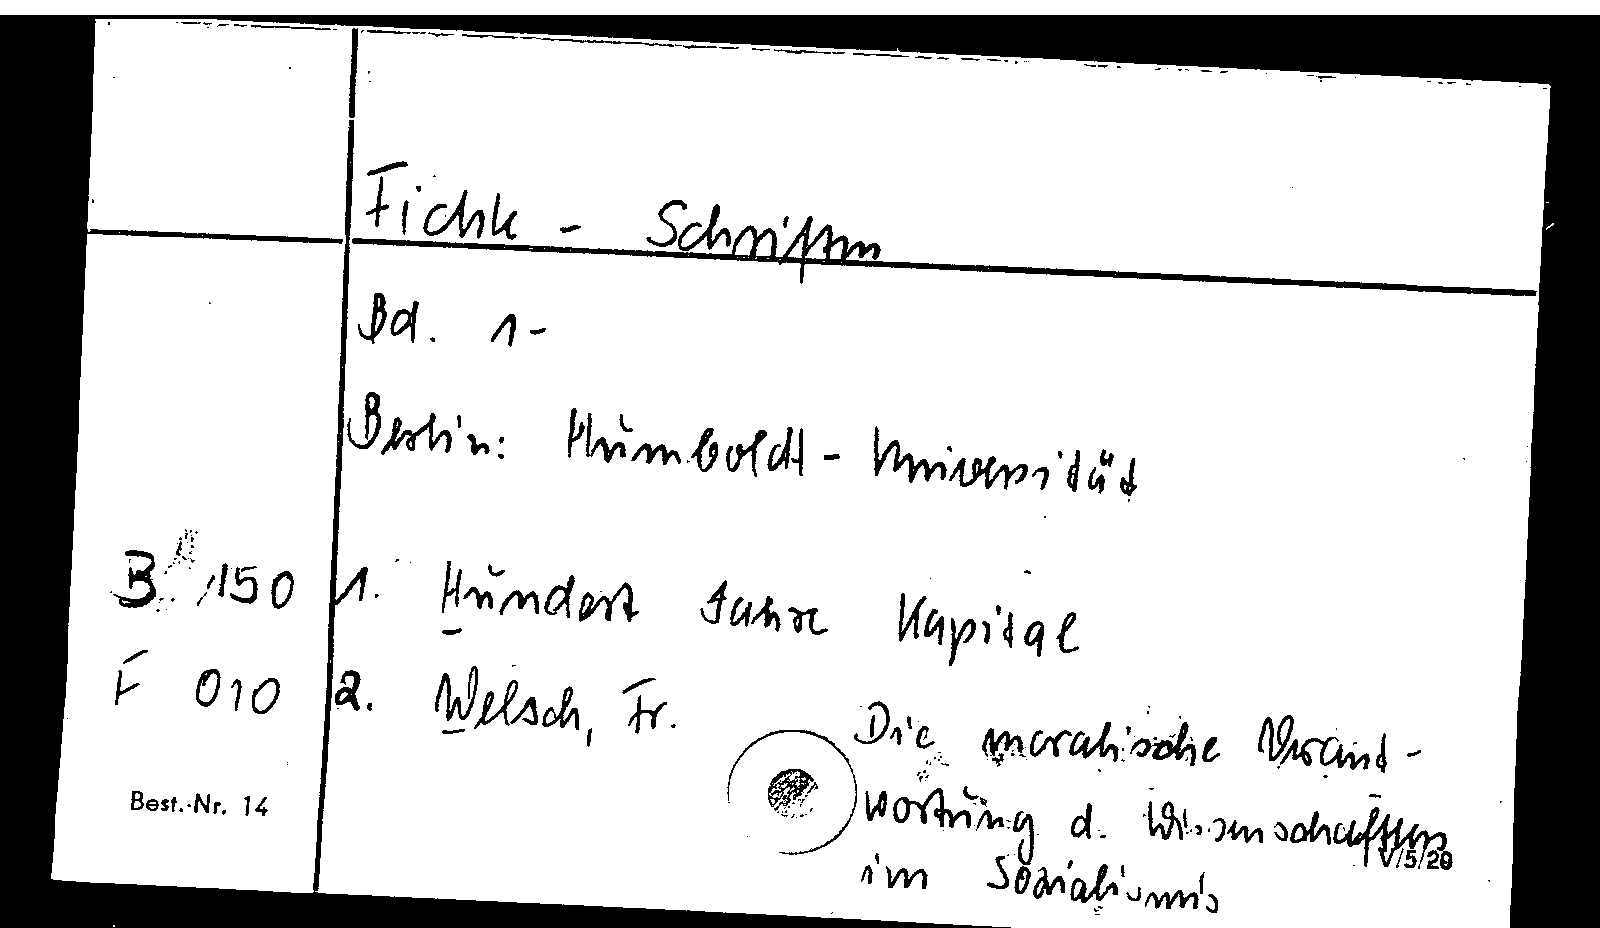 Fichte - Schriften
Bd. 1-
Berlin: Humboldt-Universität
B 150 1. Hundert Jahre Kapital
F 010 2. Welsch, Fr.
Die moralische Verant-
wortung d. Wissenschaftlers
im Sozialismus
Best.-Nr. 14
V/5/20